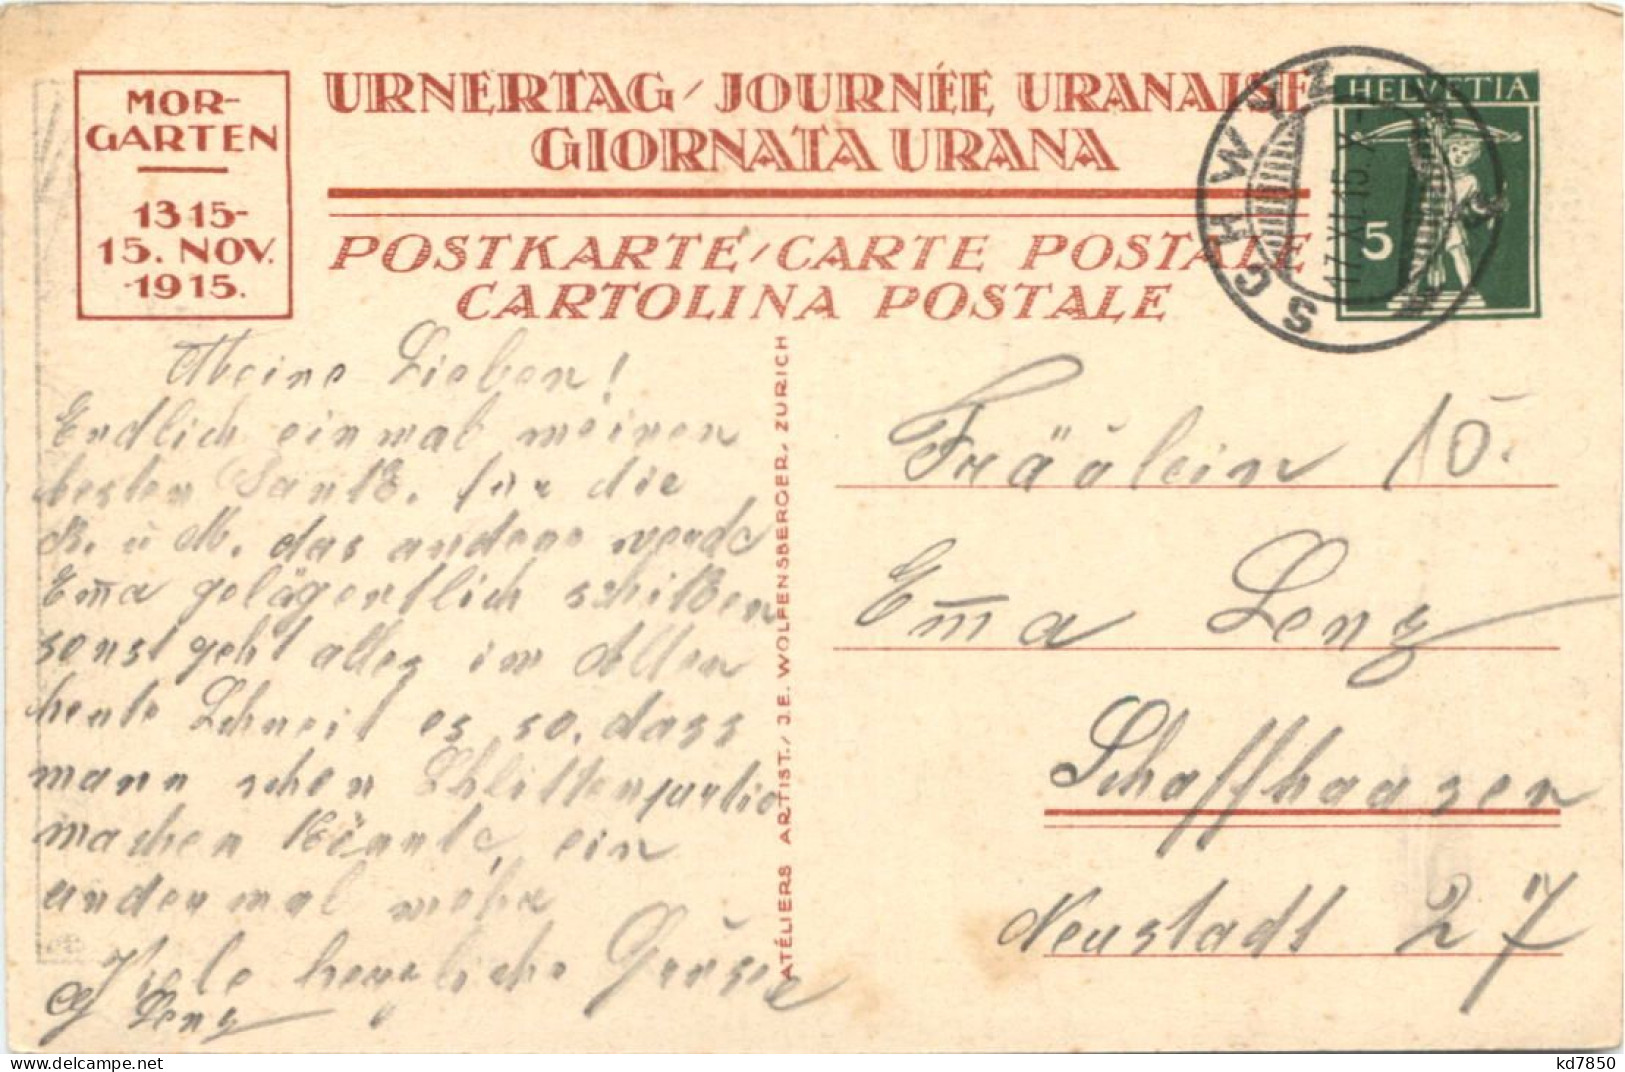 MOR-
GARTEN
1315-
15. NOV.
-1915.
URNERTAG / JOURNÉE URANAISE
GIORNATA URANA
POSTKARTE / CARTE POSTALE
CARTOLINA POSTALE
HELVETIA
5
SCHWYZ
17.XI.15.X-
Meine Lieben!
Endlich einmal meinen
besten Dank. für die
K. u M. das andere werde
Em̅a gelägentlich schiken
sonst geht alles im Alten
heute Schneit es so, dass
mann schon Schlittenpartie
machen könnte, ein
ander mal mehr
Viele herzliche Grüsse
Lenz
ATÉLIERS ARTIST. / J.E. WOLFENSBERGER, ZÜRICH
Fräulein 10.
Em̅a Lenz
Schaffhausen
Neustadt 27
www.delcampe.net
kd7850